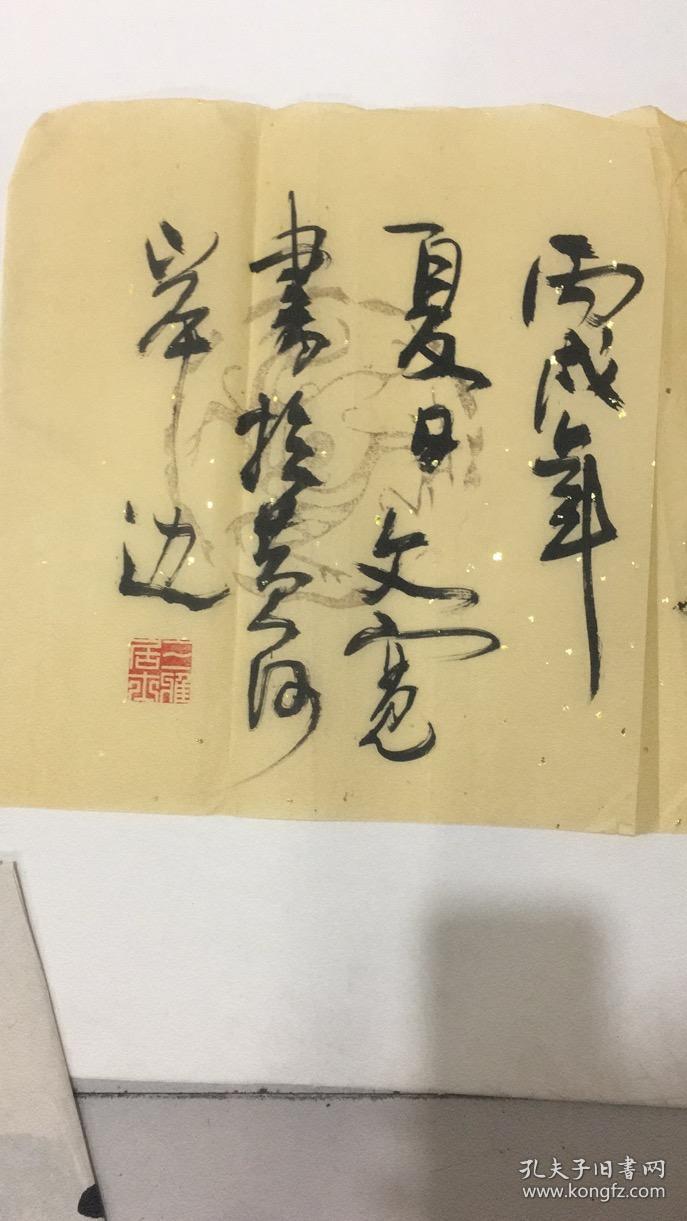 丙戌年
夏日文寬
書於黄河
岸边
孔夫子旧書网
www.kongfz.com